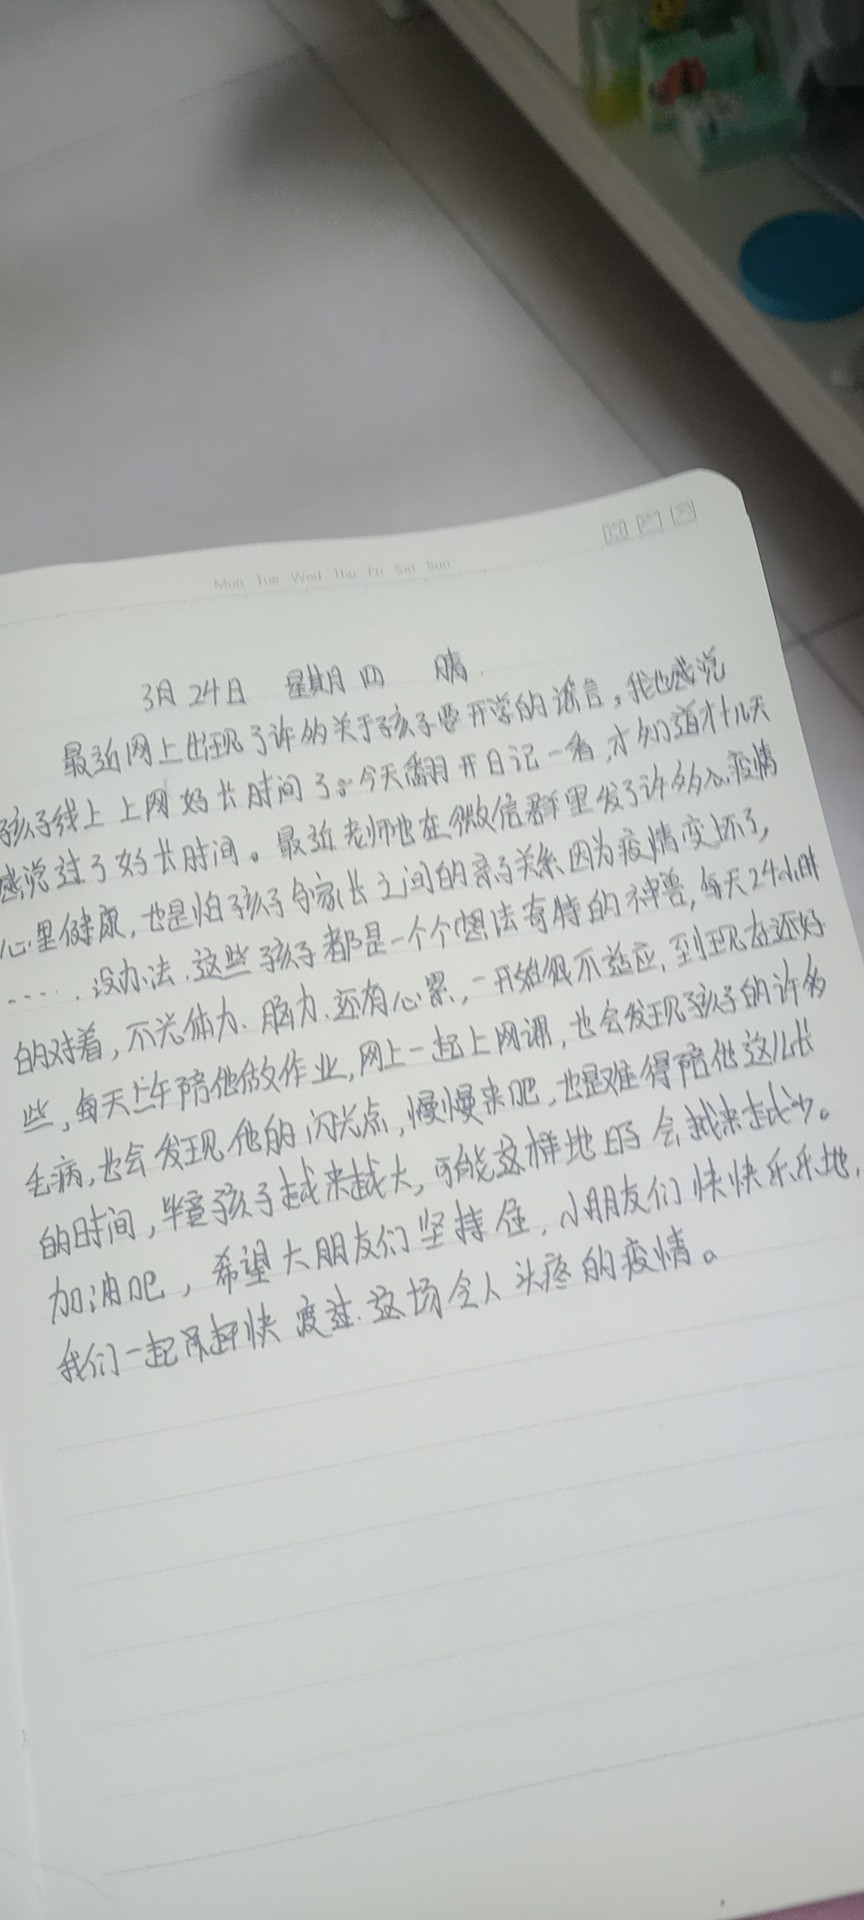 Mon Tue Wed Thu Fri Sat Sun
3月24日 星期四 晴
最近网上出现了许多关于孩子要开学的谣言。我也感觉
孩子线上上网好长时间了。今天翻开日记一看,才知道才十几天
感觉过了好长时间。最近老师也在微信群里发了许多 疫情
心里健康,也是怕孩子与家长之间的亲子关系因为疫情变坏了,
…… 没办法.这些孩子都是一个个想法奇特的神兽,每天24小时
的对着,不光体力、脑力、还有心累,一开始很不适应,到现在还好
些,每天上午陪他做作业,网上一起上网课,也会发现孩子的许多
毛病,也会发现他的闪光点,慢慢来吧,也是难得陪他这么长
的时间,毕竟孩子越来越大,可能这样地 会越来越少。
加油吧,希望大朋友们坚持住,小朋友们快快乐乐地,
我们一起 赶快度过.这场令人头疼的疫情。